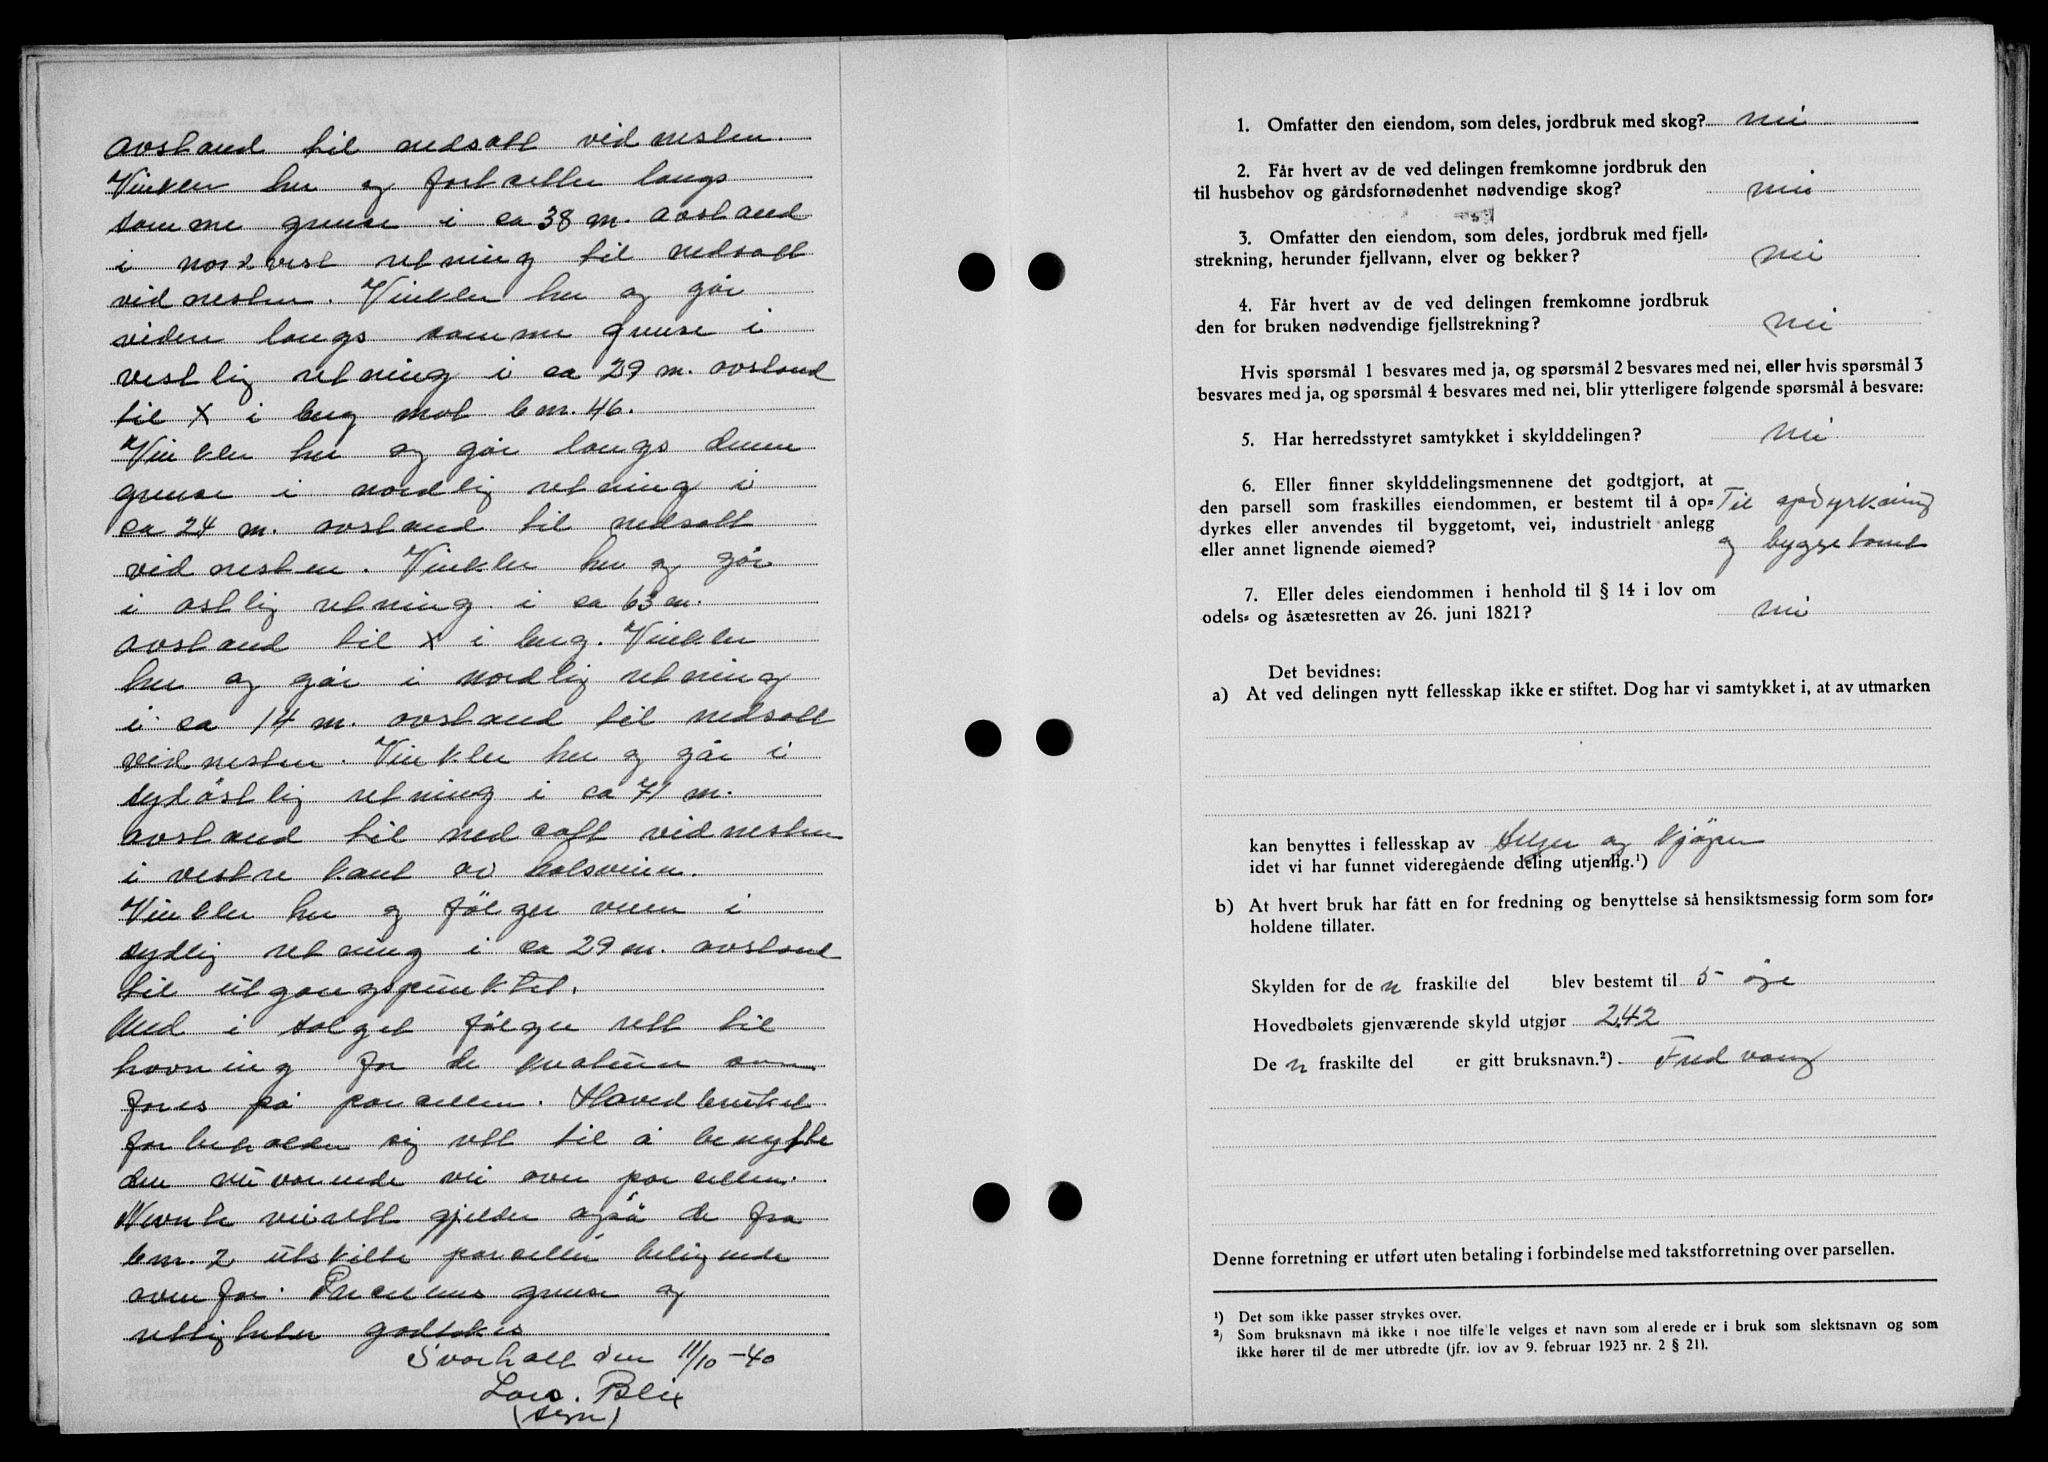 avstand til nedsatt vidnesten.
Vinkler her og fortsetter langs
samme grense i ca 38 m. avstand
i nordvest retning til nedsatt
vidnesten. Vinkler her og går
videre langs samme grense i
vestlig retning i ca 29 m. avstand
til x i berg mot bm. 46.
Vinkler her og går langs denne
grense i nordlig retning i
ca 24 m. avstand til nedsatt
vidnesten. Vinkler her og går
i østlig retning i ca 63 m.
avstand til x i berg. Vinkler
her og går i nordlig retning
i ca 14 m. avstand til nedsatt
vidnesten. Vinkler her og går i
sydøstlig retning i ca 71 m.
avstand til nedsatt vidnesten
i vestre kant av
Vinkler her og følger veien i
sydlig retning i ca 29 m. avstand
til utgangspunktet.
Med i salget følger rett til
havning for de kreaturer som
fores på parsellen. Hovedbruket
forbeholder sig rett til å benytte
den nuværende vei over parsellen.
Nevnte veirett gjelder også de fra
bm. 2 utskilte parseller beligende
ovenfor. Parsellens grense og
rettigheter godtokes
Svarholt den 11/10-40
Lars. Blix
(sign)
1. Omfatter den eiendom, som deles, jordbruk med skog? nei
2. Får hvert av de ved delingen fremkomne jordbruk den
til husbehov og gårdsfornødenhet nødvendige skog? nei
3. Omfatter den eiendom, som deles, jordbruk med fjell-
strekning, herunder fjellvann, elver og bekker? nei
4. Får hvert av de ved delingen fremkomne jordbruk
den for bruken nødvendige fjellstrekning? nei
Hvis spørsmål 1 besvares med ja, og spørsmål 2 besvares med nei, eller hvis spørsmål 3
besvares med ja, og spørsmål 4 besvares med nei, blir ytterligere følgende spørsmål å besvare:
5. Har herredsstyret samtykket i skylddelingen? nei
6. Eller finner skylddelingsmennene det godtgjort, at
den parsell som fraskilles eiendommen, er bestemt til å op- Til opdyrkning
dyrkes eller anvendes til byggetomt, vei, industrielt anlegg
eller annet lignende øiemed? og byggetomt
7. Eller deles eiendommen i henhold til § 14 i lov om
odels- og åsætesretten av 26. juni 1821? nei
Det bevidnes:
a) At ved delingen nytt fellesskap ikke er stiftet. Dog har vi samtykket i, at av utmarken
kan benyttes i fellesskap av Selger og kjøper
idet vi har funnet videregående deling utjenlig.¹)
b) At hvert bruk har fått en for fredning og benyttelse så hensiktsmessig form som for-
holdene tillater.
Skylden for de n fraskilte del blev bestemt til 5 øre
Hovedbølets gjenværende skyld utgjør 2,42
De n fraskilte del er gitt bruksnavn.²) Fredvang
Denne forretning er utført uten betaling i forbindelse med takstforretning over parsellen.
¹) Det som ikke passer strykes over.
²) Som bruksnavn må ikke i noe tilfelle velges et navn som allerede er i bruk som slektsnavn og som
ikke hører til de mer utbredte (jfr. lov av 9. februar 1923 nr. 2 § 21).